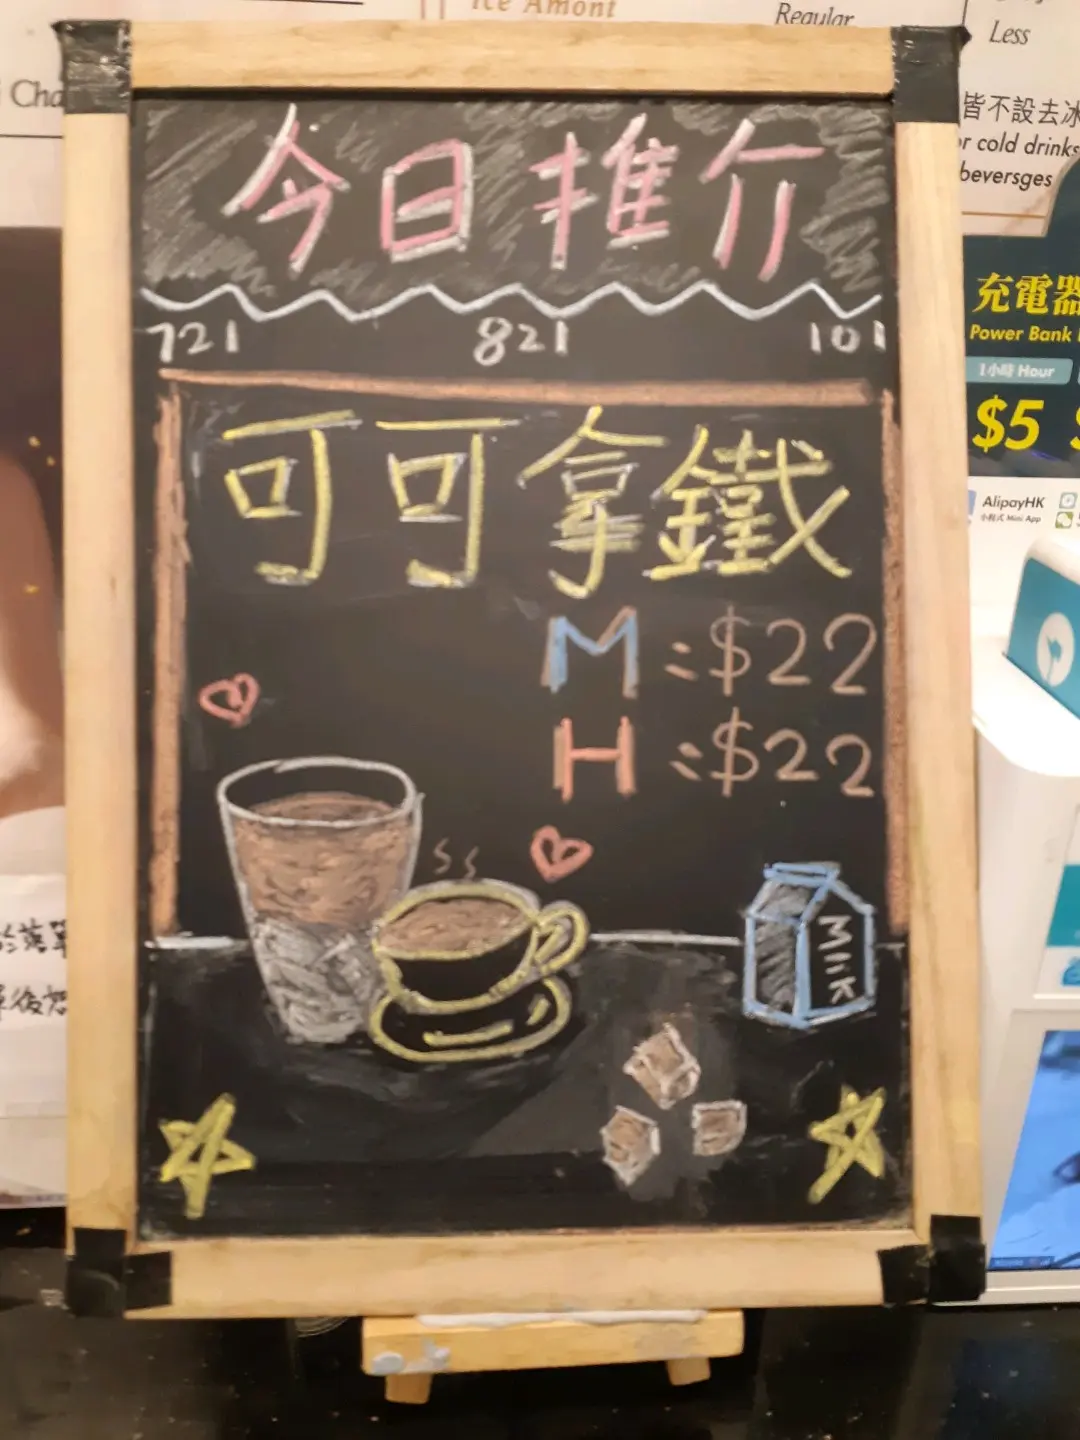 Ice Amont
Regular
Less
皆不設去冰
or cold drinks
beversges
今日推介
721 821 101
可可拿鐵
M:$22
H:$22
MIlK
充電器
Power Bank
1小時 Hour
$5
AlipayHK
小程式 Mini App